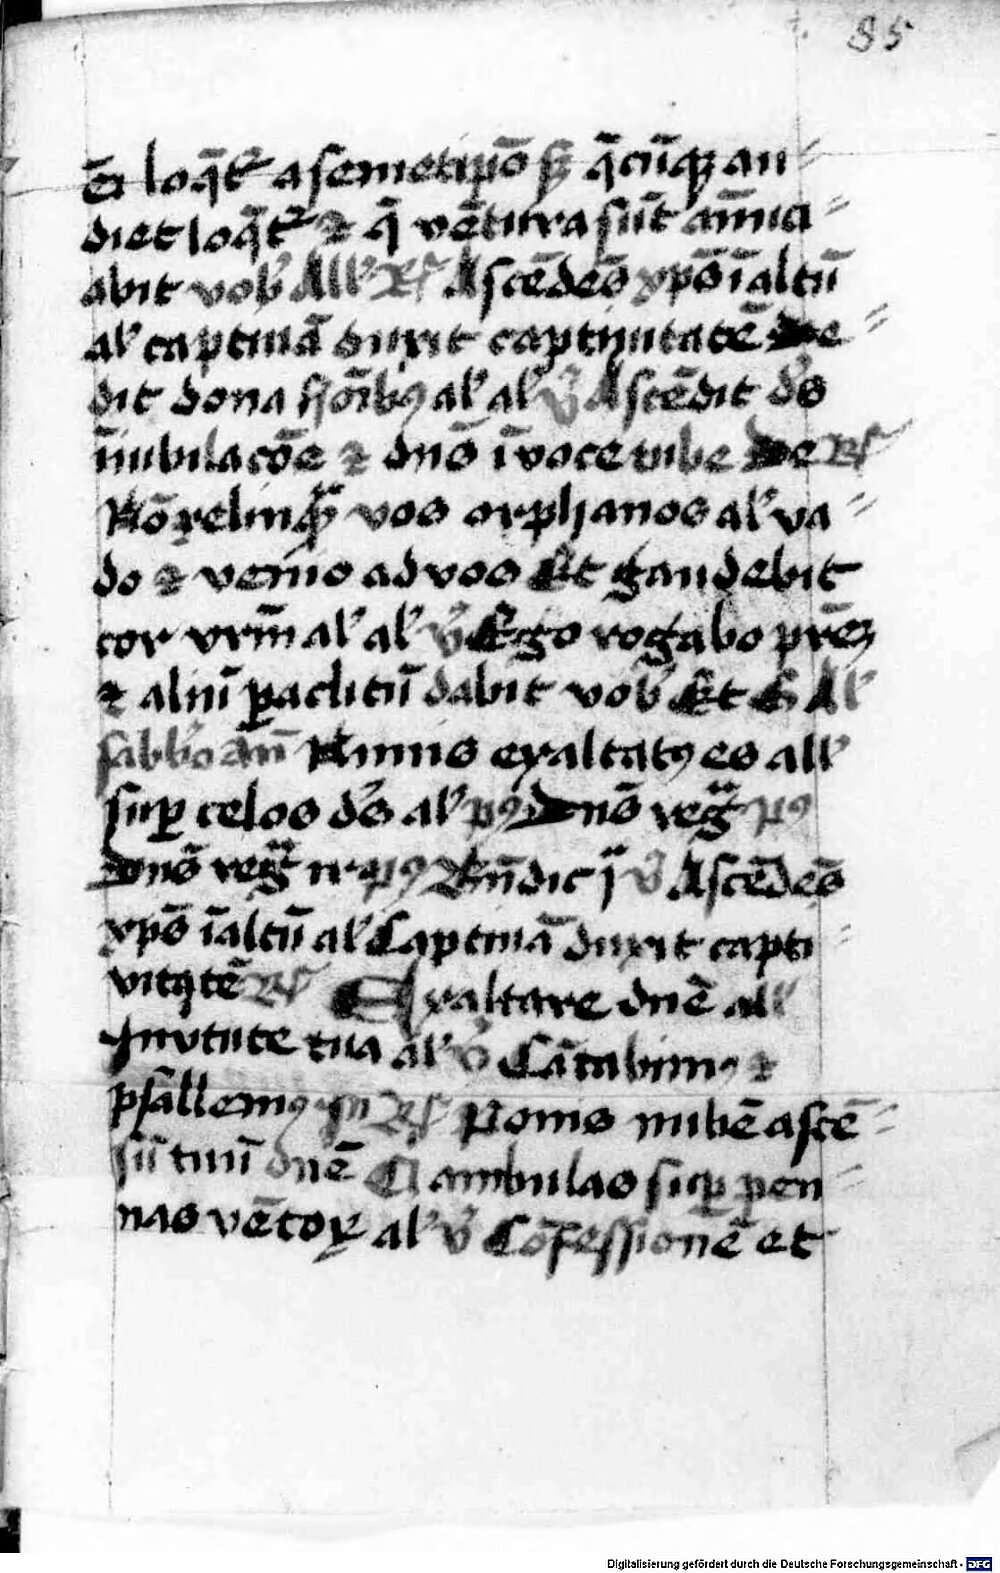 85
em̄ loq̄t᷑ a semetip̄o sꝫ q̄cūqꝫ au⸗
diet loq̄t᷑ ⁊ q̄ vētura sūt an̄uci⸗
abit vob᷒ All᷒ R᷒ Ascēdēs xp̄s ī altū
al᷒ captiuā duxit captiuitatē De⸗
dit dona hoīb⁹ al᷒ al᷒ v᷒ Ascēdit de᷒s
ī iubilacōe ⁊ dn̄s ī voce tube De R᷒
Nō relinqͣ vos orphanos al᷒ va⸗
do ⁊ venio ad vos Et gaudebit
cor vrm̄ al᷒ al᷒ v᷒ Ego rogabo prēꝫ
⁊ aliū ꝑaclitū dabit vob᷒ Et G Al᷒
sabb᷒o an̄ Nimis exaltat⁹ es all᷒
suꝑ celos de᷒s al᷒ p⁹ Dn̄s regͣ p⁹
Dn̄s regͣ ir p⁹ Bn̄dic v᷒ Ascēdēs
xp̄s ī altū al᷒ Captiuā duxit capti⸗
vitatē R᷒ Exaltare dn̄e all᷒
In v᷒tute tua al᷒ v᷒ Cātabim⁹ ⁊
psallem⁹ In R᷒ Ponis nubē ascē⸗
sū tuū dn̄e Qͥ ambulas suꝑ pen⸗
nas vētoꝝ al᷒ v᷒ Cōfessionē et
Digitalisierung gefördert durch die Deutsche Forschungsgemeinschaft - DFG